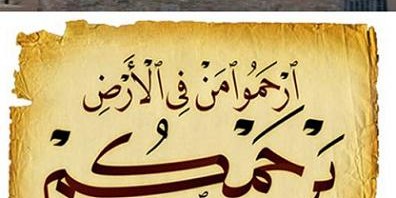 ٱرْحَمُوا۟ مَنْ فِى ٱلْأَرْضِ
يَرْحَمُكُمْ